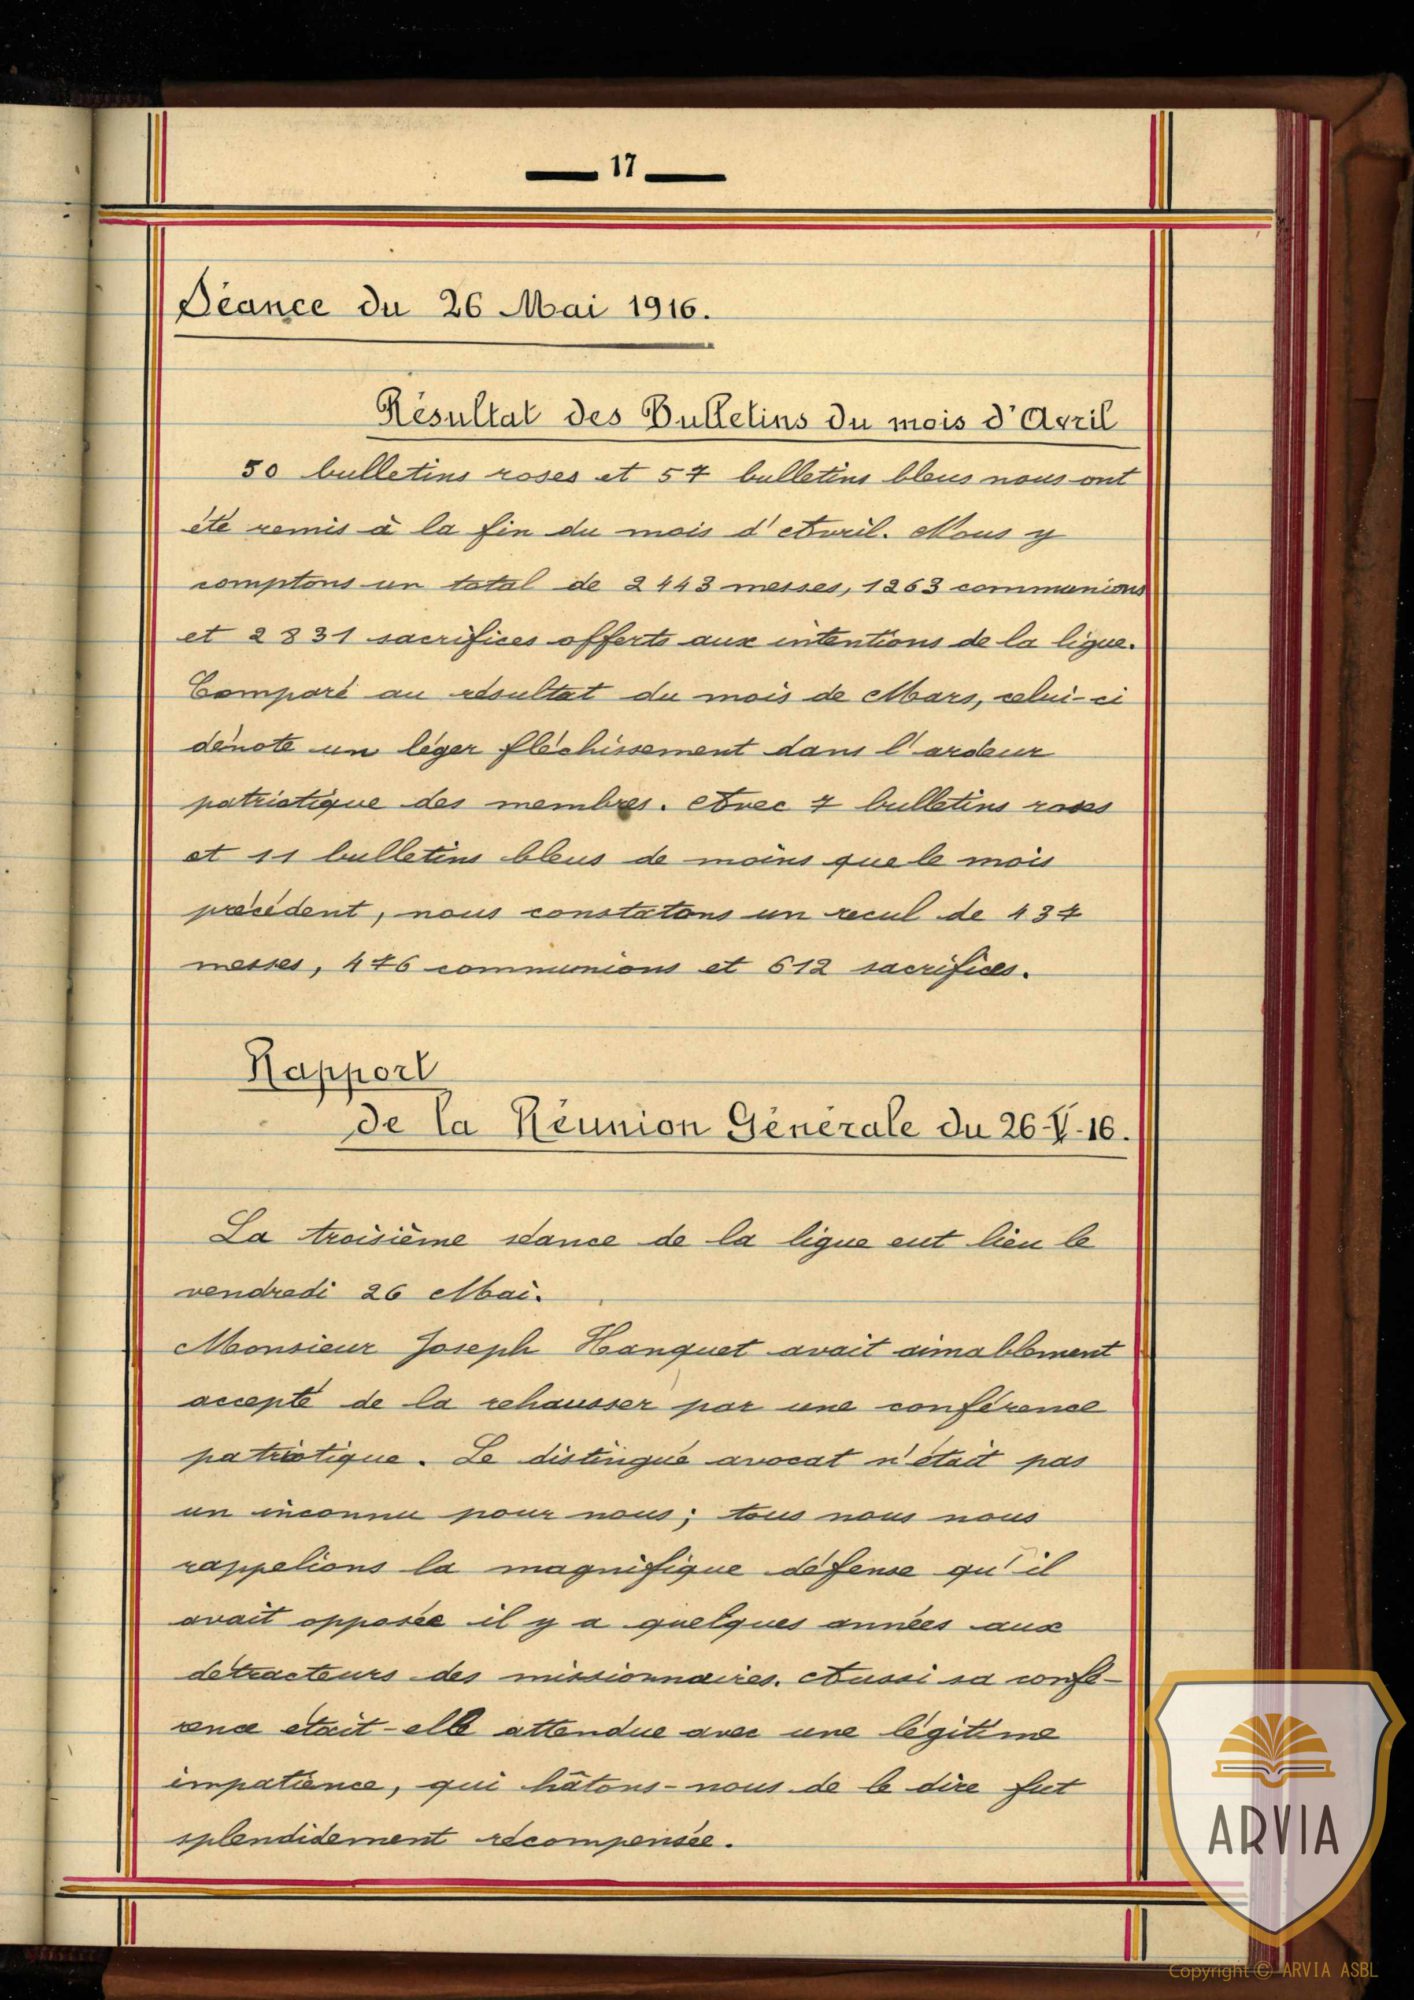 17
Séance du 26 Mai 1916.
Résultat des Bulletins du mois d'Avril
50 bulletins roses et 57 bulletins bleus nous ont
été remis à la fin du mois d'Avril. Nous y
comptons un total de 2443 messes, 1263 communions
et 2831 sacrifices offerts aux intentions de la ligue.
Comparé au résultat du mois de Mars, celui-ci
dénote un léger fléchissement dans l'ardeur
patriotique des membres. Avec 7 bulletins roses
et 11 bulletins bleus de moins que le mois
précédent, nous constatons un recul de 437
messes, 476 communions et 612 sacrifices.
Rapport
de la Réunion Générale du 26-V-16.
La troisième séance de la ligue eut lieu le
vendredi 26 Mai.
Monsieur Joseph Hanquet avait aimablement
accepté de la rehausser par une conférence
patriotique. Le distingué avocat n'était pas
un inconnu pour nous; tous nous nous
rappelions la magnifique défense qu'il
avait opposée il y a quelques années aux
détracteurs des missionnaires. Aussi sa confé-
rence était-elle attendue avec une légitime
impatience, qui hâtons-nous de le dire fut
splendidement récompensée.
ARVIA
Copyright © ARVIA ASBL